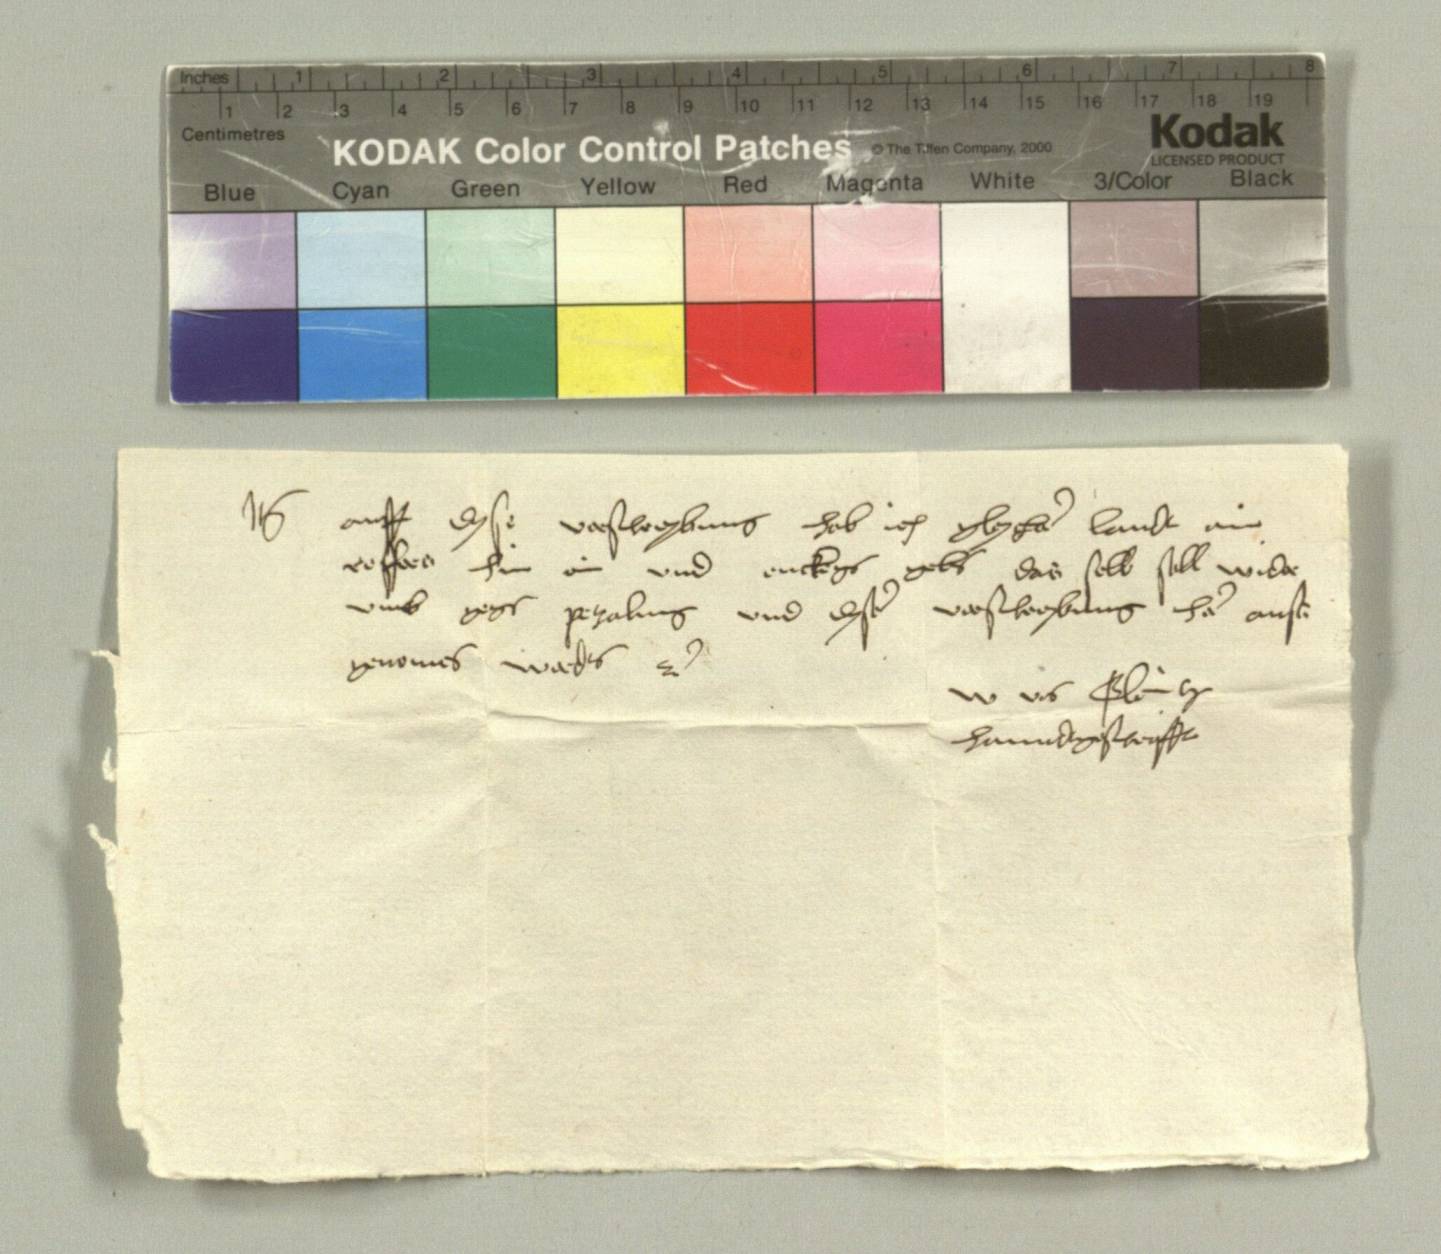 Inches 1 2 3 4 5 6 7 8
1 2 3 4 5 6 7 8 9 10 11 12 13 14 15 16 17 18 19
Centimetres
KODAK Color Control Patches © The Tiffen Company, 2000
Kodak
LICENSED PRODUCT
Blue Cyan Green Yellow Red Magenta White 3/Color Black
auff dyse verschreybung hab ich landt ein
hin ein vnd das selb soll wider
vmb pezalung vnd dyser verschreybung
genomen werden
w von
hanndtgeschrifft